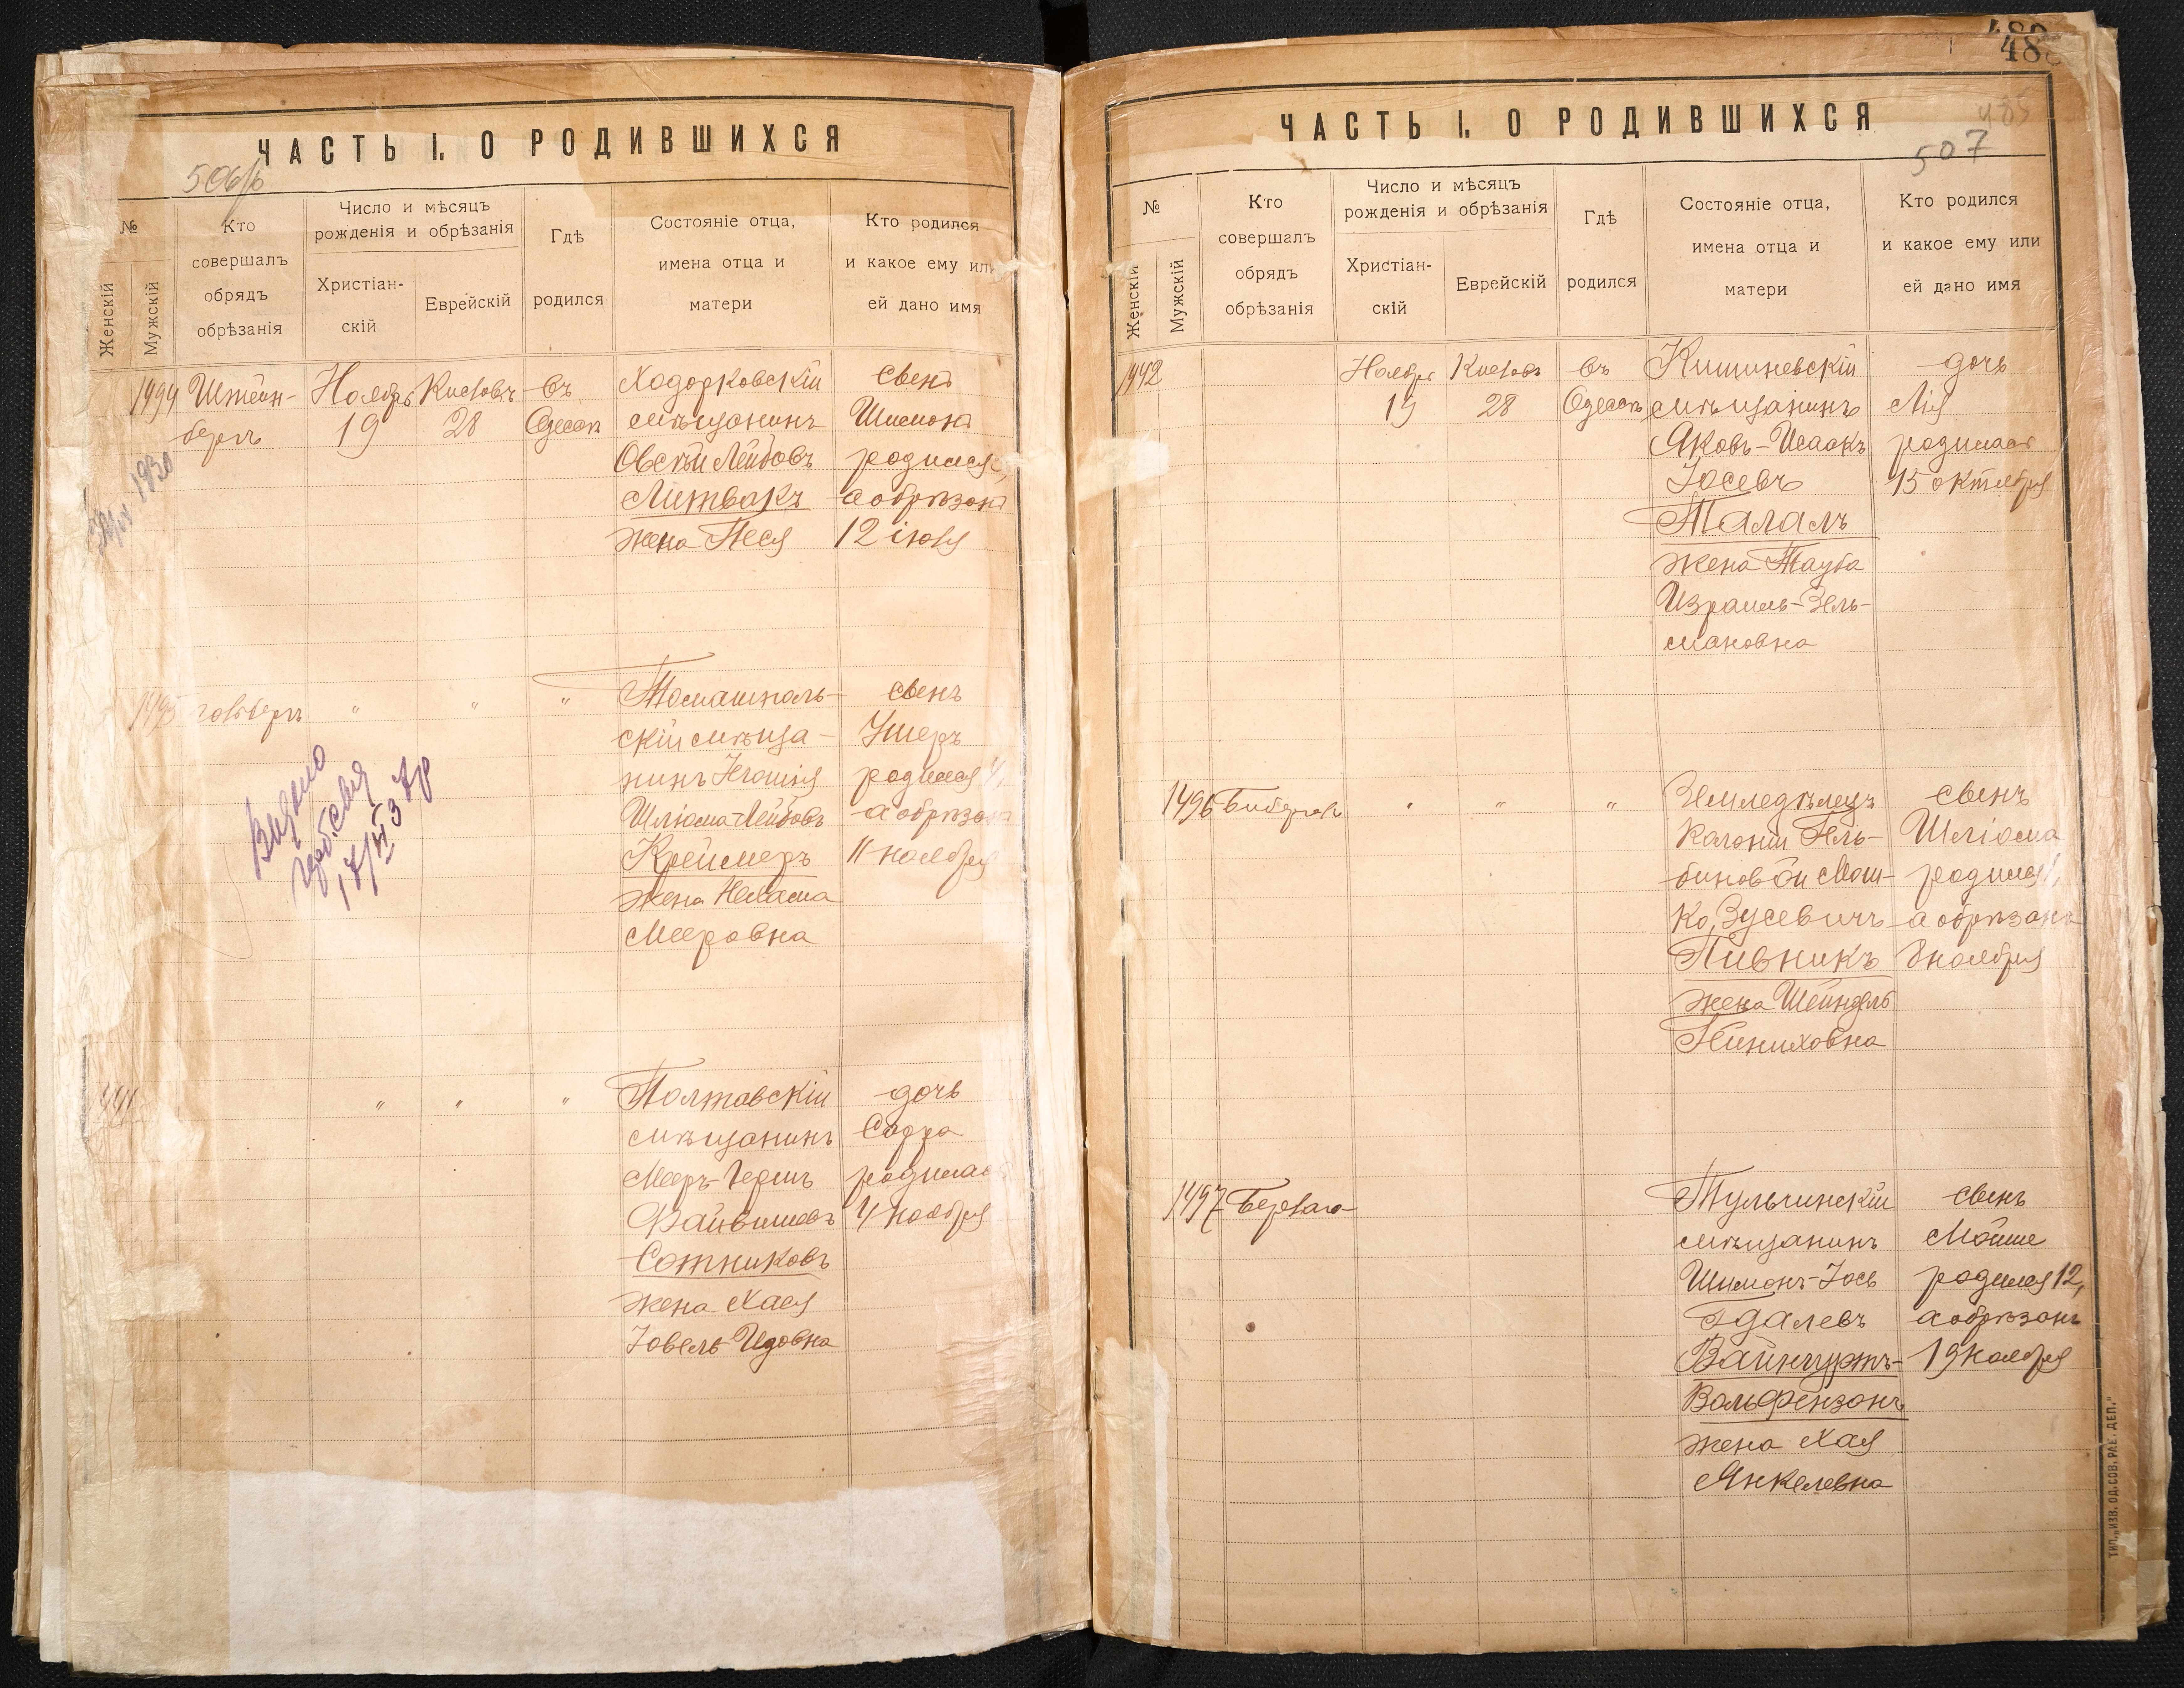 ЧАСТЬ I. О РОДИВШИХСЯ
506/б
№
Женскій
Мужскій
Кто
совершалъ
обрядъ
обрѣзанія
Число и мѣсяцъ
рожденія и обрѣзанія
Христіан-
скій
Еврейскій
Гдѣ
родился
Состояніе отца,
имена отца и
матери
Кто родился
и какое ему или
ей дано имя
1494
Штейн-
бергъ
Ноябрь
19
Кислевъ
28
въ
Одессѣ
Ходорковскій
мѣщанинъ
Овсѣй Лейбовъ
Литвакъ
жена Песя
сынъ
Шимонъ
родился
а обрѣзанъ
12 іюля
1930
1495
"
"
"
Томашполь-
скій мѣща-
нинъ
Шліома-Лейбовъ
Креймеръ
жена Нехама
Мееровна
сынъ
Ушеръ
родился 4,
а обрѣзанъ
11 ноября
Видано
"
"
"
Полтавскій
мѣщанинъ
Меръ-Гершъ
Файвишевъ
Сотниковъ
жена Хася
Іовель-Идовна
дочь
Сарра
родилась
4 ноября
ЧАСТЬ I. О РОДИВШИХСЯ
488
485
507
№
Женскій
Мужскій
Кто
совершалъ
обрядъ
обрѣзанія
Число и мѣсяцъ
рожденія и обрѣзанія
Христіан-
скій
Еврейскій
Гдѣ
родился
Состояніе отца,
имена отца и
матери
Кто родился
и какое ему или
ей дано имя
1442
Ноябрь
19
Кислевъ
28
въ
Одессѣ
Кишиневскій
мѣщанинъ
Яковъ-Исаакъ
Іосевъ
Талалъ
жена Тауба
Израиль-Зель-
мановна
дочь
Лія
родилась
15 октября
1496
"
"
"
Земледѣлецъ
колоніи Гель-
биновой Мош-
ко Зусевичъ
Пивникъ
жена Шейндель
Пиниховна
сынъ
Шліома
родился 1,
а обрѣзанъ
8 ноября
1497
Тульчинскій
мѣщанинъ
Шимонъ-Іось
Гдалевъ
Вайнгуртъ-
Вольфензонъ
жена Хая
Янкелевна
сынъ
Мойше
родился 12,
а обрѣзанъ
19 ноября
ТИП. „ИЗВ. ОД. СОВ. РАБ. ДЕП."